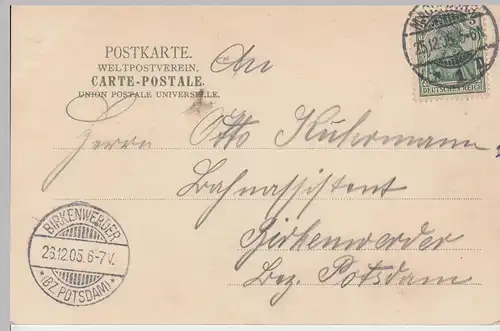 POSTKARTE.
WELTPOSTVEREIN.
CARTE-POSTALE.
UNION POSTALE UNIVERSELLE.
25.12.05.5-6N
DEUTSCHES REICH
An
Herrn Otto Kuhermann,
Bahnassistent
Birkenwerder
Bez. Potsdam
BIRKENWERDER
26.12.05.6-7V.
*(BZ.POTSDAM)*